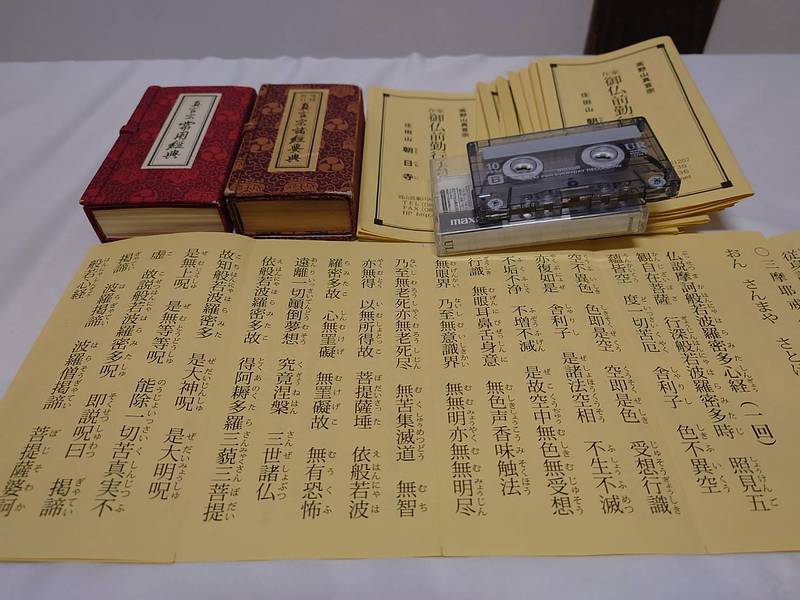 真言宗常用経典
真言宗諸經要典
高野山真言宗
在家 御仏前勤行
佳田山 朝日寺
TEL
FAX
HP
高野山真言宗
在家 御仏前勤
佳田山 朝
10
UR
maxell
UR
〇三摩耶戒
おん さんまや さと
仏説摩訶般若波羅蜜多心経（一回）
観自在菩薩 行深般若波羅蜜多時 照見五
蘊皆空 度一切苦厄 舎利子 色不異空
空不異色 色即是空 空即是色 受想行識
亦復如是 舎利子 是諸法空相 不生不滅
不垢不浄 不増不減 是故空中無色無受想
行識 無眼耳鼻舌身意 無色声香味触法
無眼界 乃至無意識界 無無明亦無無明尽
乃至無老死亦無老死尽 無苦集滅道 無智
亦無得 以無所得故 菩提薩埵 依般若波
羅蜜多故 心無罣礙 無罣礙故 無有恐怖
遠離一切顛倒夢想 究竟涅槃 三世諸仏
依般若波羅蜜多故 得阿耨多羅三藐三菩提
故知般若波羅蜜多 是大神呪 是大明呪
是無上呪 是無等等呪 能除一切苦真実不
虚 故説般若波羅蜜多呪 即説呪曰 掲諦
掲諦 波羅掲諦 波羅僧掲諦 菩提薩婆訶
般若心経